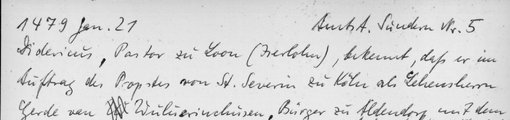 1479 Jan. 21 Amtsh. Sundern Nr. 5
Didericus, Pastor zu Loon (Iserlohn), bekennt, daß er im
Auftrag des Propstes von St. Severin zu Köln als Lehensherrn
Gerde van Wulverinchusen, Bürger zu Aldendorp, mit dem